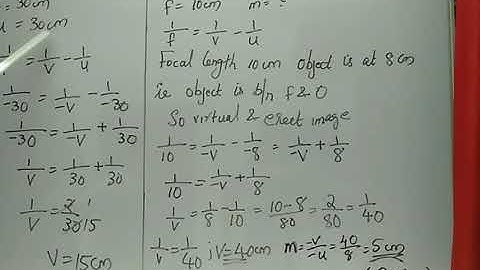 = 30cm
u = 30cm
1/v - 1/u
1/-30 = 1/-v - 1/-30
1/-30 = 1/-v + 1/30
1/v = 1/30 + 1/30
1/v = 2/30 1/15
V = 15cm
f = 10cm m=
1/f = 1/v - 1/u
Focal length 10cm object is at 8cm
ie object is b/n f & O
So virtual & erect image
1/10 = 1/-v - 1/-8 = 1/-v + 1/8
1/10 = 1/-v + 1/8
1/v = 1/8 - 1/10 = 10-8/80 = 2/80 = 1/40
1/v = 1/40 ; v = 40cm m = -v/-u = 40/8 = 5cm